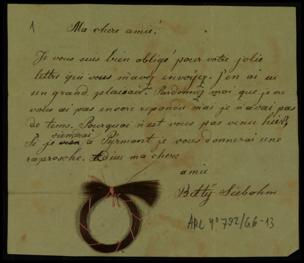 1
Ma chere amie!
Je vous suis bien obligé pour votre jolie
lettre qui vous m'avez envoyez. J'en ai eu
un grand plaisir. Pardonnez moi que je ne
vous ai pas encore repondu mai je n'avai pas
de tems. Pourquoi n'est vous pas venue hier?
Si je viendrai à Pyrmont je vous donnerai une
raprosche. Adieu ma chere
amie
Betty Seebohm